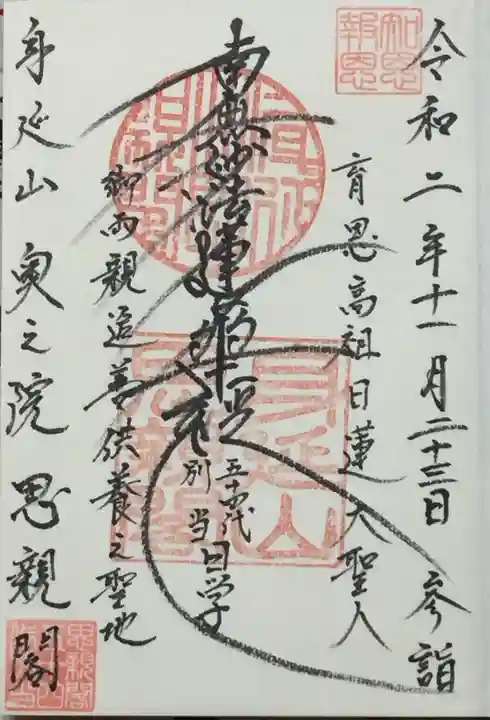 令和二年十一月二十三日 参詣
知恩報恩
育恩高祖日蓮大聖人
南無妙法蓮華経
五十四代
別当 日学
身延山
御両親追善供養之聖地
身延山奥之院思親閣